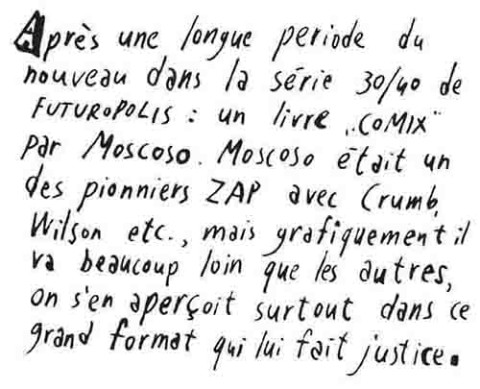 Après une longue periode du
nouveau dans la série 30/40 de
FUTUROPOLIS : un livre „COMIX"
par Moscoso. Moscoso était un
des pionniers ZAP avec Crumb,
Wilson etc., mais grafiquement il
va beaucoup loin que les autres,
on s'en aperçoit surtout dans ce
grand format qui lui fait justice.